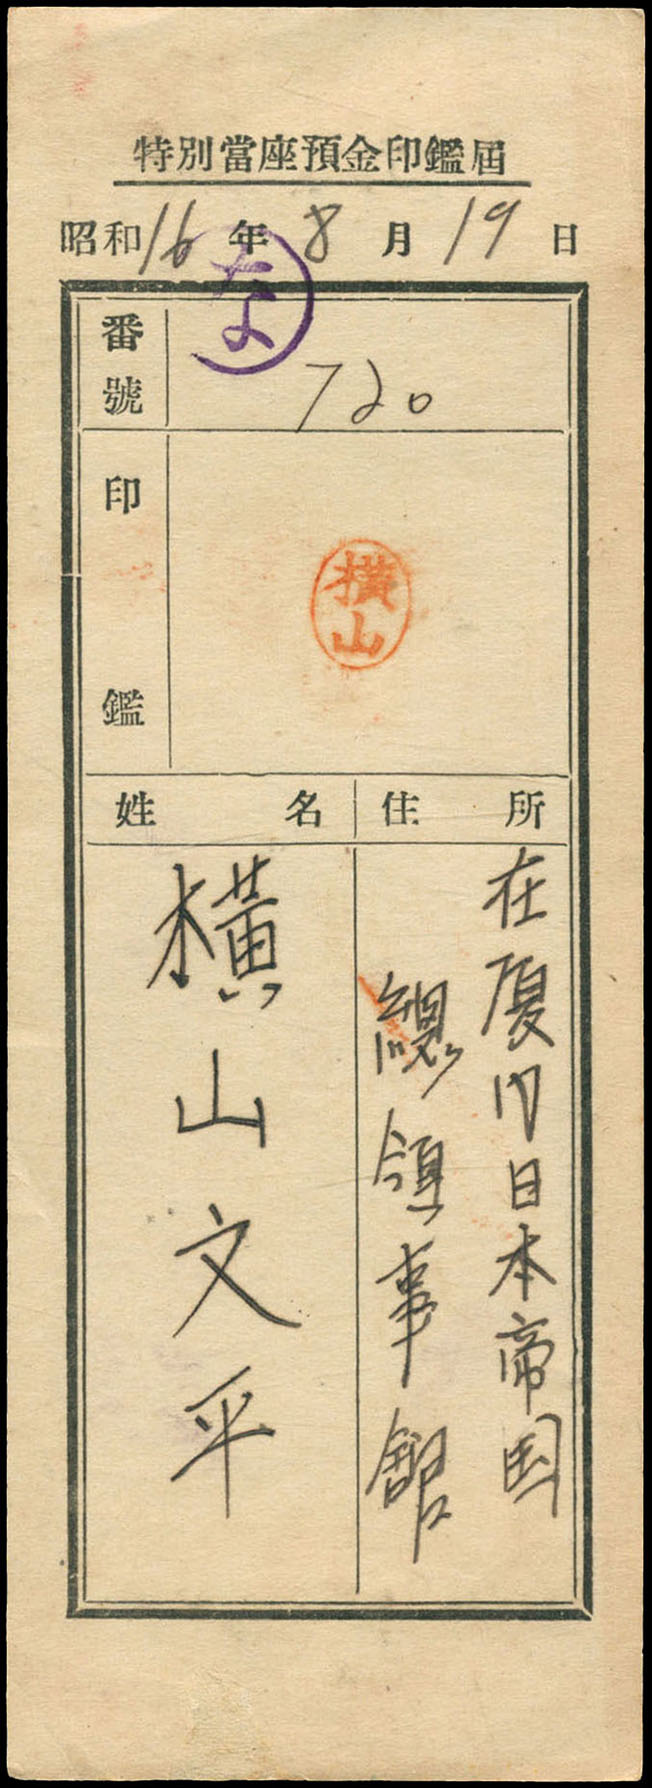 特別當座預金印鑑屆
昭和16年8月19日
な
番號
720
印鑑
橫山
姓名
住所
在厦门日本帝国
總領事館
橫山文平